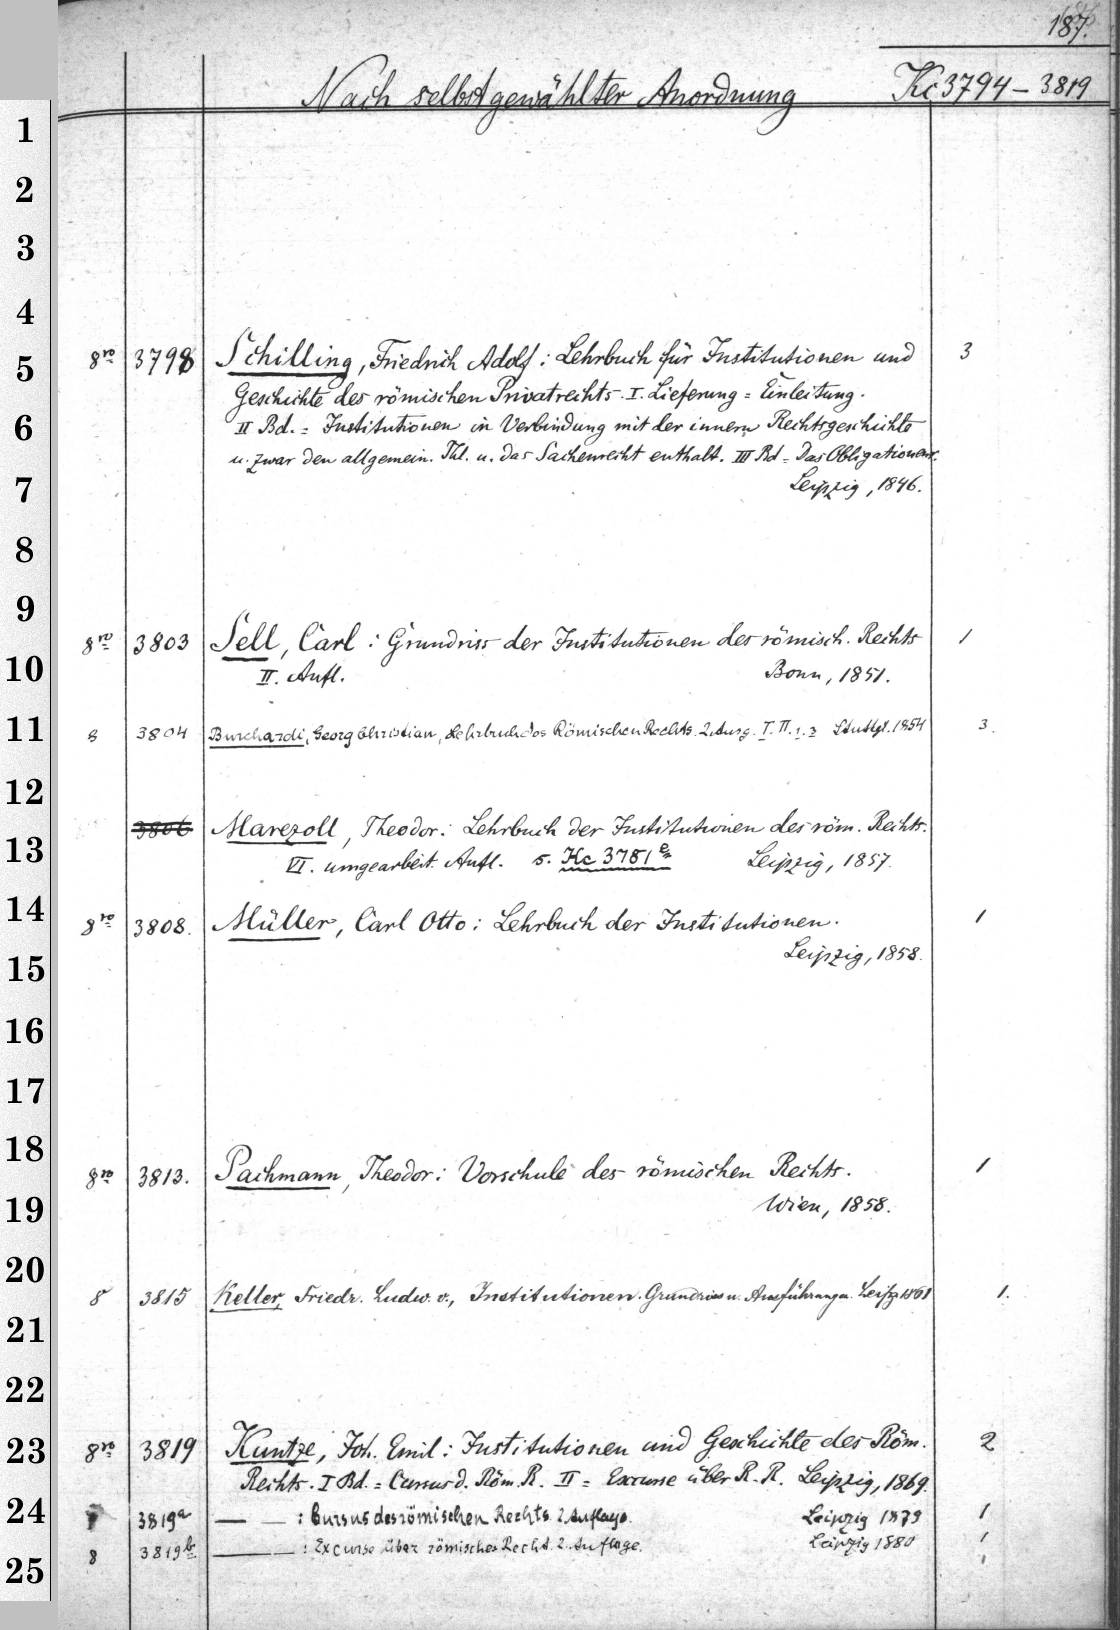 187.
Nach selbstgewählter Anordnung Kc 3794 – 3819
1
2
3
4
5
6
7
8
9
10
11
12
13
14
15
16
17
18
19
20
21
22
23
24
25
8ro 3798 Schilling, Friedrich Adolf: Lehrbuch für Institutionen und 3
Geschichte des römischen Privatrechts. I. Lieferung = Einleitung.
II Bd. = Institutionen in Verbindung mit der innern Rechtsgeschichte
u. zwar den allgemein. Thl. u. das Sachenrecht enthalt. III Bd = Das Obligationenr.
Leipzig, 1846.
8ro 3803 Sell, Carl: Grundriss der Institutionen des römisch. Rechts 1
II. Aufl. Bonn, 1851.
8 3804 Burchardi, Georg Christian, Lehrbuch des Römischen Rechts. 2. Ausg. I. II. 1. 3 Stuttgt. 1854 3.
3806 Marezoll, Theodor: Lehrbuch der Institutionen des röm. Rechts.
VI. umgearbeit. Aufl. s. Kc 3781e Leipzig, 1857.
8ro 3808. Müller, Carl Otto: Lehrbuch der Institutionen. 1
Leipzig, 1858.
8ro 3813. Pachmann, Theodor: Vorschule des römischen Rechts. 1
Wien, 1858.
8 3815 Keller, Friedr. Ludw. v., Institutionen. Grundriss u. Ausführungen. Leipz 1861 1.
8ro 3819 Kuntze, Joh. Emil: Institutionen und Geschichte des Röm. 2
Rechts. I Bd. = Cursus d. Röm. R. II = Excurse über R. R. Leipzig, 1869.
3819a — — : Cursus des römischen Rechts. 2. Auflage. Leipzig 1879 1
8 3819b ——— : Excurse über römisches Recht. 2. Auflage. Leipzig 1880 1
1